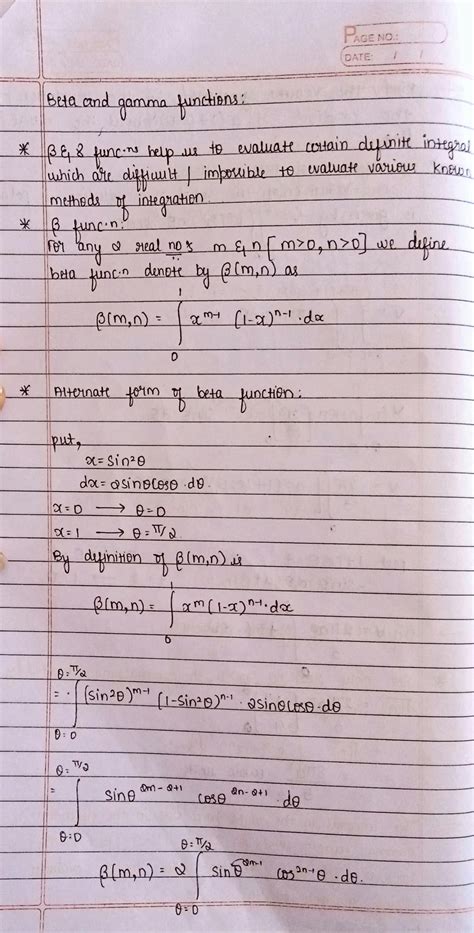 PAGE NO.:
DATE: / /
Beta and gamma functions:
* β & 8 func.ns help us to evaluate certain definite integral
which are difficult / impossible to evaluate various known
methods of integration.
* β func.n:
For any 2 real no.s m & n [m>0, n>0] we define
beta func.n denote by β(m,n) as
β(m,n) = ∫₀¹ x^{m-1} (1-x)^{n-1} · dx
* Alternate form of beta function:
put,
x = sin²θ
dx = 2sinθcosθ · dθ
x=0 → θ=0
x=1 → θ=π/2
By definition of β(m,n) is
β(m,n) = ∫₀¹ x^m (1-x)^{n-1} · dx
= ∫_{θ=0}^{θ=π/2} (sin²θ)^{m-1} (1-sin²θ)^{n-1} · 2sinθcosθ · dθ
= ∫_{θ=0}^{θ=π/2} sinθ^{2m-2+1} cosθ^{2n-2+1} · dθ
β(m,n) = 2 ∫_{θ=0}^{θ=π/2} sinθ^{2m-1} cos^{2n-1}θ · dθ.